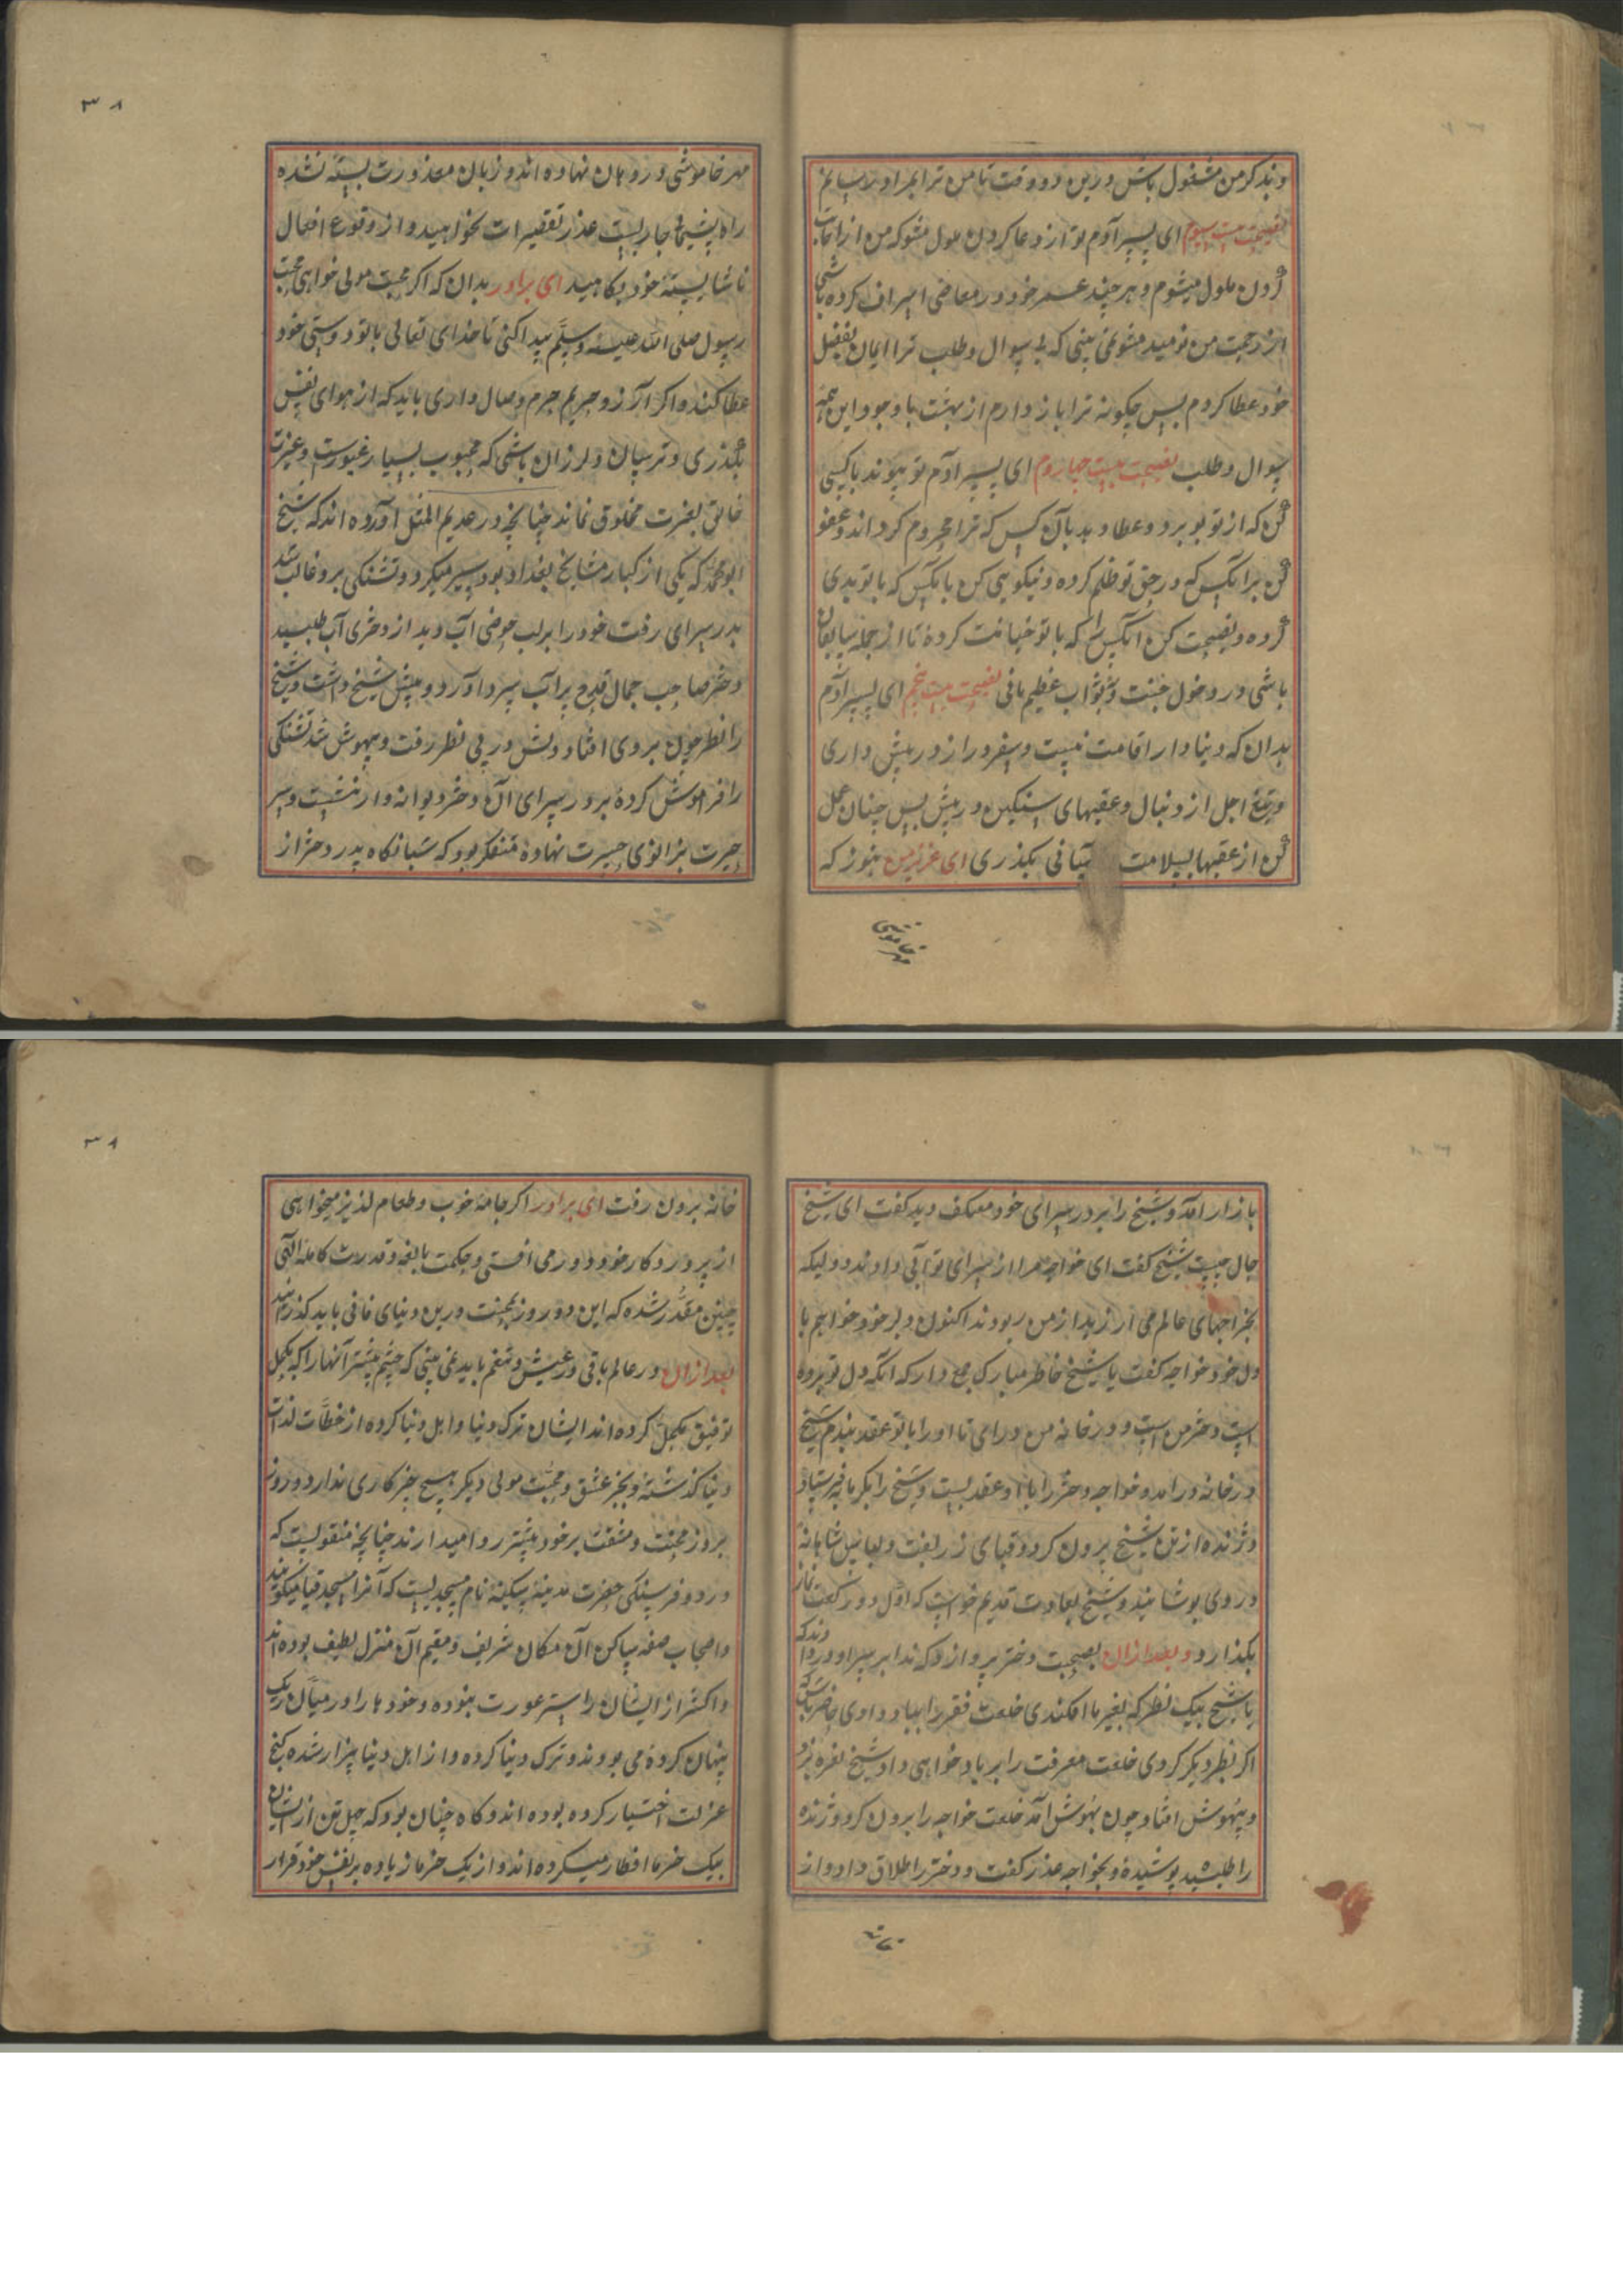 وبذکر من مشغول باش درین دو وقت تا من ترا بمراد رسانم
نصیحت بیست سیوم ای پسر آدم تو از دعا کردن ملول مشو که من از اجابت
کردن ملول نمیشوم و هر چند عمر خود در معاصی اسراف کرده باشی
از رحمت من نومید مشو نمی بینی که بی سوال و طلب ترا ایمان بفضل
خود عطا کردم پس چکونه ترا باز دارم از بهشت با وجود این همه
سوال و طلب نصیحت بیست چهارم ای پسر آدم تو پیوند با کسی
کن که از تو ببرد و عطا ده بدان کس که ترا محروم کرداند و عفو
کن برانکس که در حق تو ظلم کرده و نیکویی کن بانکس که با تو بدی
کرده و نصیحت کن انکس را که با تو خیانت کرده تا از جمله سابقان
باشی در دخول جنت و ثواب عظیم یافی نصیحت بیست پنجم ای پسر آدم
بدان که دنیا دار اقامت نیست و سفر دراز در پیش داری
و تیغ اجل از دنبال و عقبهای سنکین در پیش پس چنان عمل
کن از عقبها بسلامت بآسانی بکذری ای عزیز من هنوز که
مهر خاموشی
۳۸
مهر خاموشی در دهان نهاده اند و زبان معذورت بسته نشده
راه پشیمانی جاریست عذر تقصیرات بخواهید و از وقوع افعال
ناشایسته خود بکاهید ای برادر بدان که اکر محبت مولی خواهی محبت
رسول صلی الله علیه وسلم پیدا کنی تا خدای تعالی با تو دوستی خود
عطا کند و اکر آرزو حریم حرم وصال داری باید که از هوای نفس
بکذری و ترسان و لرزان باشی که محبوب بسیار غیورست و غیرت
خالق بغیرت مخلوق نماند چنانچه در عدیم المثل آورده اند که شیخ
ابو محمد که یکی از کبار مشایخ بغداد بود سیر میکرد و تشنکی برو غالب شد
بدر سرای رفت خود را بر لب حوضی آب دید از دختری آب طلبید
دختر صاحب جمال قدح پر آب سرد آورد و پیش شیخ داشت و شیخ
را نظر چون بروی افتاد دلش در پی نظر رفت و بیهوش شد تشنکی
را فراموش کرده بر در سرای آن دختر دیوانه وار نشست و سر
حیرت بزانوی حسرت نهاده متفکر بود که شبانکاه پدر دختر از
بازار آمد و شیخ را بر در سرای خود معتکف دید کفت ای شیخ
حال چیست شیخ کفت ای خواجه مرا از سرای تو آبی دادند و دلیکه
بخراجهای عالم می ارزید از من ربودند اکنون دلبر خود خواهم یا
دل خود خواجه کفت یا شیخ خاطر مبارک جمع دار که انکه دل تو برده
است دختر من است و در خانه من درای تا او را با تو عقد بندم شیخ
در خانه درامد و خواجه دختر را با او عقد بست و شیخ را بکرمابه فرستاد
و ژنده از تن شیخ برون کرد و قبای زربفت و لباس شاهانه
در وی پوشانید و شیخ بعادت قدیم خواست که اول دو رکعت نماز
بکذارد و بعد ازان بصحبت دختر پردازد که ندا بر سر او در دادند که
یا شیخ بیک نظر که بغیر ما افکندی خلعت فقر را بباد دادی حاضر باش که
اکر نظر دیکر کردی خلعت معرفت را بر باد خواهی داد شیخ نعره بزد
و بیهوش افتاد چون بهوش آمد خلعت خواجه را برون کرد و ژنده
را طلبید پوشیده و بخواجه عذر کفت و دختر را طلاق داد و از
خانه
۳۸
خانه برون رفت ای برادر اکر جامه خوب و طعام لذیذ میخواهی
از پروردکار خود دور می افتی و حکمت بالغه و قدرت کامله الهی
چنین مقدر شده که این دو روز بمحنت درین دنیای فانی باید کذرانید
بعد ازان در عالم باقی در عیش و تنعم باید نمی بینی که چشم بیشتر آنها را که بکحل
توفیق مکحل کرده اند ایشان ترک دنیا و اهل دنیا کرده از خطّات لذات
دنیا کذشته و بجز عشق و محبت مولی دیکر هیچ جز کاری ندارد و روز
بروز محنت و مشقت بر خود بیشتر روا میدارند چنانچه منقولیست که
در دو فرسنکی حضرت مدینه سکینه نام مسجدیست که آنرا مسجد قبا میکویند
و اصحاب صفه ساکن آن مکان شریف و مقیم آن منزل لطیف بوده اند
و اکثر از ایشان را ستر عورت نبوده و خود را در میان ریک
پنهان کرده می بودند و ترک دنیا کرده و از اهل دنیا بیزار شده کنج
عزلت اختیار کرده بوده اند و کاه چنان بود که چهل تن از ایشان
بیک خرما افطار میکرده اند و از یک خرما زیاده بر نفس خود قرار